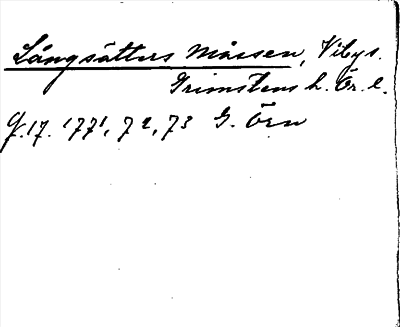 Långsätters Mossen, Viby s.
Grimstens h. Ör. l.
17. 1771, 72, 73 G. Örn